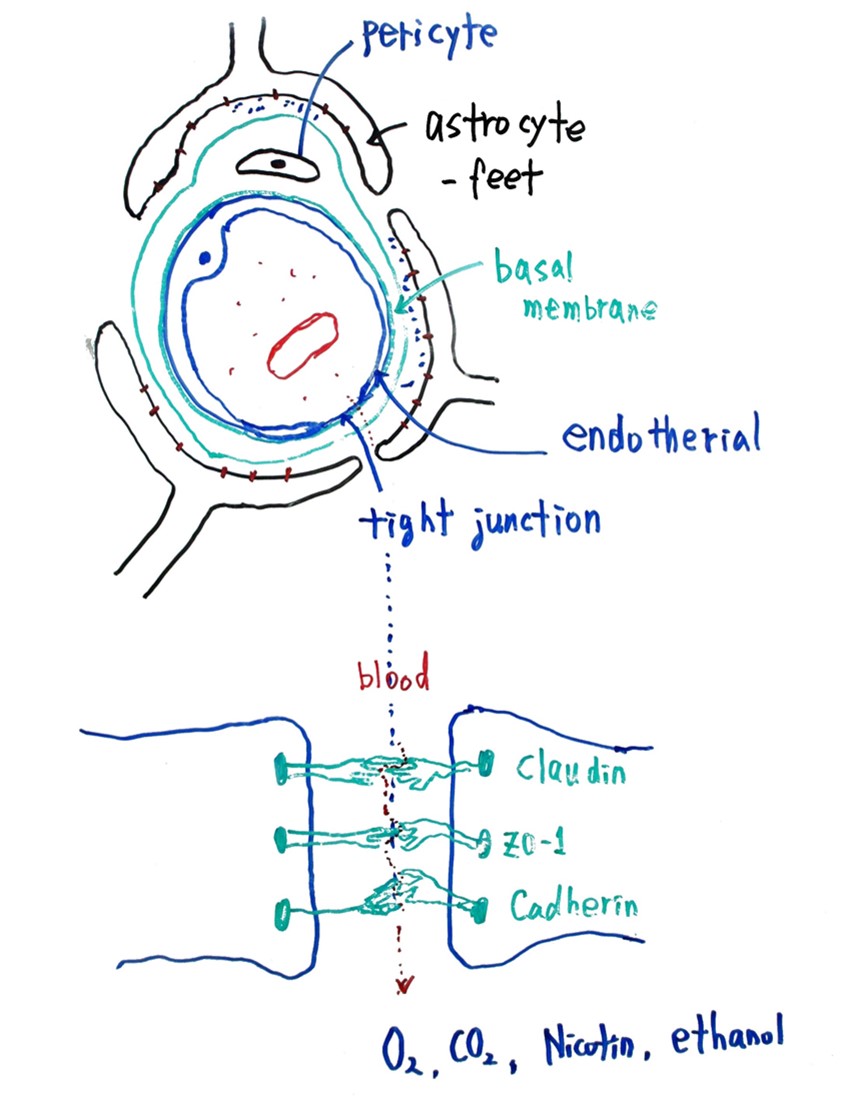 pericyte
astrocyte
- feet
basal
membrane
endotherial
tight junction
blood
Claudin
ZO-1
Cadherin
O₂, CO₂, Nicotin, ethanol